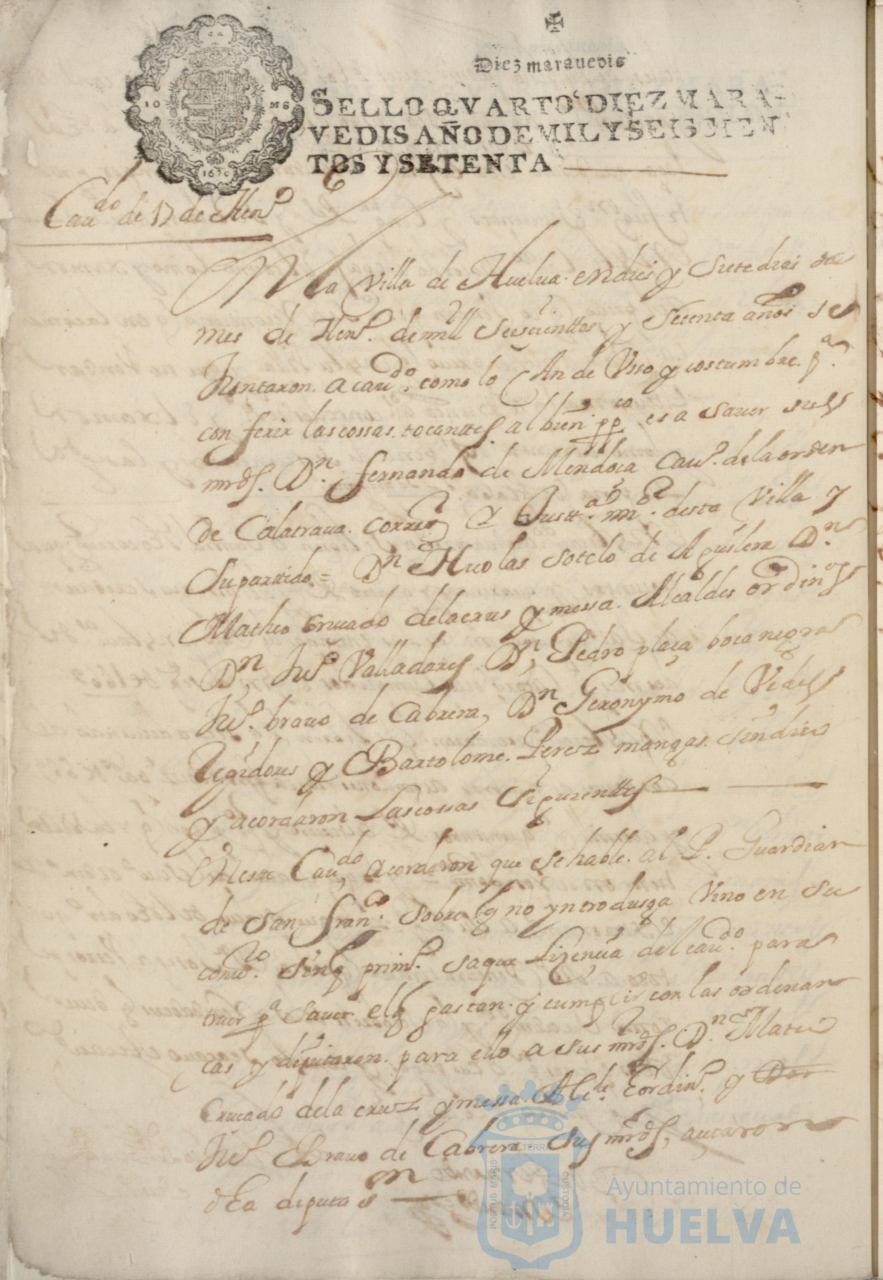 Diez maravedis
SELLO QVARTO, DIEZ MARA-
VEDIS AÑO DE MIL Y SEISCIEN
TOS Y SETENTA
1670
Cauᵈᵒ de 17 de Henᵒ
En la Villa de Huelua. en dies y Siete dias del
mes de Henᵒ. de mill seiscienttos y Setenta años se
Juntaron. a cauᵈᵒ. como lo An de Vsso y costumbre. pᵃ.
conferir las cossas. tocanttes. al bien ppᶜᵒ es a sauer sus
mrds. Dⁿ. fernando de Mendoça Cauᵒ. de la orden
de Calatraua. corregᵒʳ Justᵃ. mᵒʳ. desta Villa y
Su partido = Dⁿ Nicolas sotelo de Aguilera Dⁿ.
Matheo Crucado de la crus y messa. Alcaldes ordinᵒˢ
Dⁿ Juᵒ. Valladares Dⁿ, Pedro plaça bocanegra
Juᵒ. brauo de Cabrera, Dⁿ Geronymo de Vides
Regidores y Bartolome. Perez mangas. sindico
y acordaron Las cossas Siguienttes
En este Cauᵈᵒ, acordaron que se hable. al P. Guardian
de san franᶜᵒ. sobre q no yntrodusga Vino en su
conuᵗᵒ. sin q primᵒ. saque Lizençia del cauᵈᵒ. para
traer pᵃ sauer el q gastan. y cumplir con las ordenan
cas y diputaron. para ello a sus mrds. Dⁿ Mateo
Crucado de la cruz y messa Alcᵈᵉ. ordinᵒ. y
Juᵒ. Brauo de Cabrera sus mrds,
diputaᵉˢ
PORTUS MARIS
ET TERRAE
CUSTODIA
Ayuntamiento de
HUELVA